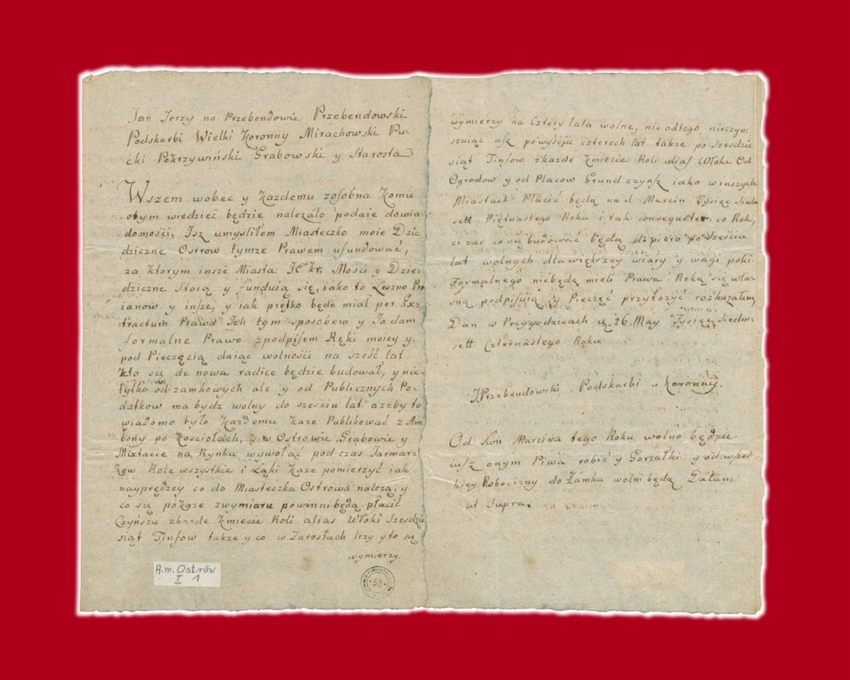 Jan Jerzy na Przebendowie Przebendowski
Podskarbi Wielki Koronny Mirachowski Pu-
cki Pokrzywiński Grabowski y Starosta
Wszem wobec y Kazdemu zosobna Komu
obym wiedzieć będzie nalezało podaie dowia
domości. Isz umysliłem Miasteczko moie Dzie
dziczne Ostrow tymze Prawem ufundować,
za ktorym insze Miasta JK kr. Mości y Dzie
dziczne Stoią y fundują się, iako to Leszno
ianow y insze, y iak prętko będe miał per Ex
tractum Prawa Ich tym sposobem y Ja dam
formalne Prawo zpodpisem Ręki moiey y
pod Pieczęcią daiąc wolności na sześć lat
kto się de nowa radice będzie budował, y nie
tylko od zamkowych ale y od Publicznych Po-
datkow ma bydz wolny do sześciu lat azeby to
wiadomo było Kazdemu Kaze Publikować z Am
bony po Kosciołach, y w Ostrowie Grabowie y
Mixtacie na Rynku wywołać pod czas Jarmar
kow Role wszystkie i Łąki Kaze pomierzyć iak
nayprędzey co do Miasteczka Ostrowa nalezą, y
co się pokaze zwymiaru powinni będą płacić
Czynszu zkazde Kmiecie Roli alias Włoki Szesdzie
siąt Tinfow takze y co w Zarosłach lezy y to się
wymierzy
wymierzy na Cztery lata wolne, nie odtego nieczyn
szuiąc aż powyściu czterech lat takze po Szesdzie
siąt Tinfow zkazde Kmiecie Roli alias Włoki Od
Ogrodow y od Placow Grund czynsz iako w inszych
Miastach Płacić będą na S Marcin Tysiąc Siedm
sett Piętnastego Roku i tak consequter co Rok,
ci zas co się budować będą dopiero po sześciu
lat wolnych dla większey wiary y wagi poki
Formalnego niebędą mieli Prawa Ręką się wła
sną podpisuię y Pieczęć przyłozyć rozkazałem
Dan w Przygodzicach d. 26. May Tysiąc Siedm
sett Czternastego Roku
JPrzebendowski Podskarbi w Koronny.
Od Swn Marcina tego Roku wolno będzie
wsz onym Piwa robić y Gorzałki y od
kiey Robocizny do Zamku wolni będą Datum
ut Supra
A.m. Ostrów
I 1